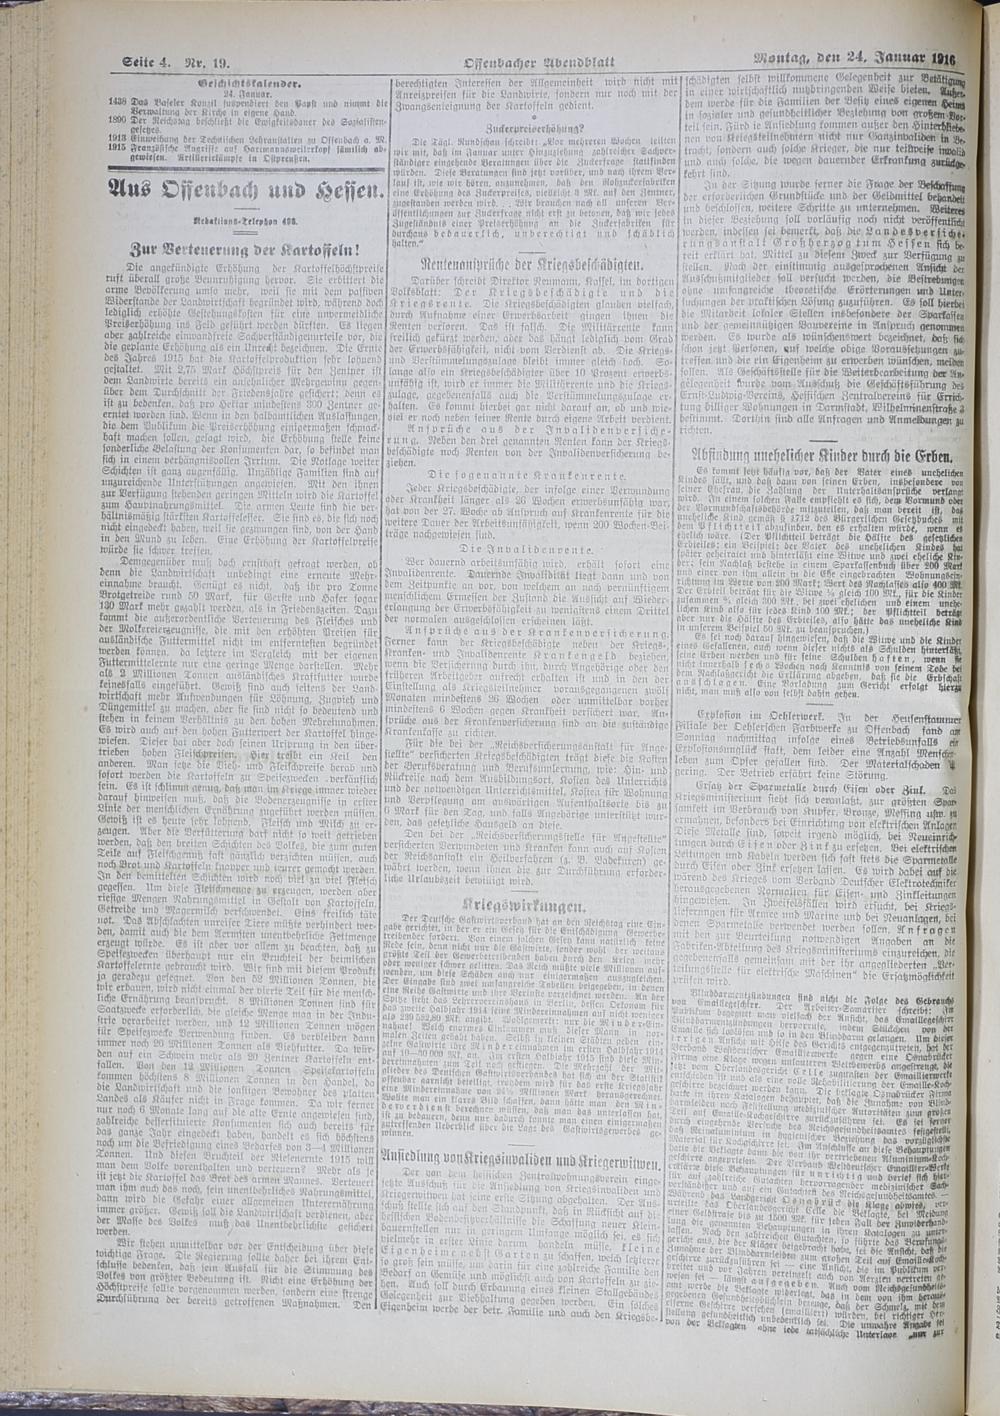 Seite 4. Nr. 19.
Offenbacher Abendblatt
Montag, den 24. Januar 1916
Geschichtskalender.
24. Januar.
1438 Das Baseler Konzil suspendiert den Papst und nimmt die
Verwaltung der Kirche in eigene Hand.
1890 Der Reichstag beschließt die Ewigkeitsdauer des Sozialisten-
gesetzes.
1913 Einweihung der Technischen Lehranstalten zu Offenbach a. M.
1915 Französische Angriffe auf Hartmannsweilerkopf sämtlich ab-
gewiesen. Artilleriekämpfe in Ostpreußen.
Aus Offenbach und Hessen.
Redaktions-Telephon 498.
Zur Verteuerung der Kartoffeln!
Die angekündigte Erhöhung der Kartoffelhöchstpreise
ruft überall große Beunruhigung hervor. Sie erbittert die
arme Bevölkerung umso mehr, weil sie mit dem passiven
Widerstande der Landwirtschaft begründet wird, während doch
lediglich erhöhte Gestehungskosten für eine unvermeidliche
Preiserhöhung ins Feld geführt werden dürften. Es liegen
aber zahlreiche einwandfreie Sachverständigenurteile vor, die
die geplante Erhöhung als ein Unrecht bezeichnen. Die Ernte
des Jahres 1915 hat die Kartoffelproduktion sehr lohnend
gestaltet. Mit 2,75 Mark Höchstpreis für den Zentner ist
dem Landwirte bereits ein ansehnlicher Mehrgewinn gegen-
über dem Durchschnitt der Friedensjahre gesichert; denn es
ist zu bedenken, daß pro Hektar mindestens 200 Zentner ge-
erntet worden sind. Wenn in den halbamtlichen Auslassungen,
die dem Publikum die Preiserhöhung einigermaßen schmack-
haft machen sollen, gesagt wird, die Erhöhung stelle keine
sonderliche Belastung der Konsumenten dar, so befindet man
sich in einem verhängnisvollen Irrtum. Die Notlage weiter
Schichten ist ganz augenfällig. Unzählige Familien sind auf
unzureichende Unterstützungen angewiesen. Mit den ihnen
zur Verfügung stehenden geringen Mitteln wird die Kartoffel
zum Hauptnahrungsmittel. Die armen Leute sind die ver-
hältnismäßig stärksten Kartoffelesser. Sie sind es, die sich noch
nicht eingedeckt haben, weil sie gezwungen sind, von der Hand
in den Mund zu leben. Eine Erhöhung der Kartoffelpreise
würde sie schwer treffen.
Demgegenüber muß doch ernsthaft gefragt werden, ob
denn die Landwirtschaft unbedingt eine erneute Mehr-
einnahme braucht. Genügt es nicht, daß ihr pro Tonne
Brotgetreide rund 50 Mark, für Gerste und Hafer sogar
130 Mark mehr gezahlt werden, als in Friedenszeiten. Dazu
kommt die außerordentliche Verteuerung des Fleisches und
der Molkereierzeugnisse, die mit den erhöhten Preisen für
ausländische Futtermittel nicht im entferntesten begründet
werden können, da letztere im Vergleich mit der eigenen
Futtermittelernte nur eine geringe Menge darstellen. Mehr
als 2 Millionen Tonnen ausländisches Kraftfutter wurde
keinesfalls eingeführt. Gewiß sind auch seitens der Land-
wirtschaft mehr Aufwendungen für Löhnung, Zugvieh und
Düngemittel zu machen, aber sie sind nicht so bedeutend und
stehen in keinem Verhältnis zu den hohen Mehreinnahmen.
Es wird auch auf den hohen Futterwert der Kartoffel hinge-
wiesen. Dieser hat aber doch seinen Ursprung in den über-
trieben hohen Fleischpreisen. Hier treibt ein Keil den
anderen. Man setze die Vieh- und Fleischpreise herab und
sofort werden die Kartoffeln zu Speisezwecken verkäuflich
sein. Es ist schlimm genug, daß man im Kriege immer wieder
darauf hinweisen muß, daß die Bodenerzeugnisse in erster
Linie der menschlichen Ernährung zugeführt werden müssen.
Gewiß ist es heute sehr lohnend, Fleisch und Milch zu er-
zeugen. Aber die Verfütterung darf nicht so weit getrieben
werden, daß den breiten Schichten des Volkes, die zum guten
Teile auf Fleischgenuß fast gänzlich verzichten müssen, auch
noch Brot und Kartoffeln knapper und teurer gemacht werden.
In den bemittelten Schichten wird noch viel zu viel Fleisch
gegessen. Um diese Fleischmenge zu erzeugen, werden aber
riesige Mengen Nahrungsmittel in Gestalt von Kartoffeln,
Getreide und Magermilch verschwendet. Eins freilich täte
not. Das Abschlachten unreifer Tiere müßte verhindert wer-
den, damit auch die dem Aermsten unentbehrliche Fettmenge
erzeugt würde. Es ist aber vor allem zu beachten, daß zu
Speisezwecken überhaupt nur ein Bruchteil der heimischen
Kartoffelernte gebraucht wird. Wir sind mit diesem Produkt
ja geradezu gesegnet. Von den 52 Millionen Tonnen, die
wir erbauen, wird nicht einmal der vierte Teil für die mensch-
liche Ernährung beansprucht. 8 Millionen Tonnen sind für
Saatzwecke erforderlich, die gleiche Menge mag in der Indu-
strie verarbeitet werden, und 12 Millionen Tonnen mögen
für Speisezwecke Verwendung finden. Es verbleiben dann
immer noch 20 Millionen Tonnen als Viehfutter. Da wür-
den auf ein Schwein mehr als 20 Zentner Kartoffeln ent-
fallen. Von den 12 Millionen Tonnen Speisekartoffeln
kommen höchstens 8 Millionen Tonnen in den Handel, da
die Landwirtschaft und die sonstigen Bewohner des platten
Landes als Käufer nicht in Frage kommen. Da wir ferner
nur noch 6 Monate lang auf die alte Ernte angewiesen sind,
zahlreiche bessersituierte Konsumenten sich auch bereits für
das ganze Jahr eingedeckt haben, handelt es sich höchstens
noch um die Befriedigung eines Bedarfes von 3—4 Millionen
Tonnen. Und diesen Bruchteil der Riesenernte 1915 will
man dem Volke vorenthalten und verteuern? Mehr als je
ist jetzt die Kartoffel das Brot des armen Mannes. Verteuert
man ihm auch das noch, sein unentbehrliches Nahrungsmittel,
dann wird die Gefahr einer allgemeinen Unterernährung
immer größer. Gewiß soll die Landwirtschaft verdienen, aber
der Masse des Volkes muß das Unentbehrlichste gesichert
werden.
Wir stehen unmittelbar vor der Entscheidung über diese
wichtige Frage. Die Regierung sollte daher bei ihrem Ent-
schlusse bedenken, daß sein Ausfall für die Stimmung des
Volkes von größter Bedeutung ist. Nicht eine Erhöhung der
Höchstpreise sollte vorgenommen werden, sondern eine strenge
Durchführung der bereits getroffenen Maßnahmen. Den
berechtigten Interessen der Allgemeinheit wird nicht mit
Anreizpreisen für die Landwirte, sondern nur noch mit der
Zwangsenteignung der Kartoffeln gedient.
*
Zuckerpreiserhöhung?
Die Tägl. Rundschau schreibt: „Vor mehreren Wochen teilten
wir mit, daß im Januar unter Hinzuziehung zahlreicher Sachver-
ständiger eingehende Beratungen über die Zuckerfrage stattfinden
würden. Diese Beratungen sind jetzt vorüber, und nach ihrem Ver-
lauf ist, wie wir hören, anzunehmen, daß den Rohzuckerfabriken
eine Erhöhung des Zuckerpreises, vielleicht 3 Mk. auf den Zentner,
zugestanden werden wird. . . Wir brauchen nach all unseren Ver-
öffentlichungen zur Zuckerfrage nicht erst zu betonen, daß wir jedes
Zugeständnis einer Preiserhöhung an die Zuckerfabriken für
durchaus bedauerlich, unberechtigt und schädlich
halten.“
Rentenansprüche der Kriegsbeschädigten.
Darüber schreibt Direktor Neumann, Kassel, im dortigen
Volksblatt: Der Kriegsbeschädigte und die
Kriegsrente. Die Kriegsbeschädigten glauben vielfach,
durch Aufnahme einer Erwerbsarbeit gingen ihnen die
Renten verloren. Das ist falsch. Die Militärrente kann
freilich gekürzt werden, aber das hängt lediglich vom Grad
der Erwerbsfähigkeit, nicht vom Verdienst ab. Die Kriegs-
und Verstümmelungszulage bleibt immer gleich hoch. So-
lange also ein Kriegsbeschädigter über 10 Prozent erwerbs-
unfähig ist, wird er immer die Militärrente und die Kriegs-
zulage, gegebenenfalls auch die Verstümmelungszulage er-
halten. Es kommt hierbei gar nicht darauf an, ob und wie-
viel er noch neben seiner Rente durch eigene Arbeit verdient.
Ansprüche aus der Invalidenversiche-
rung. Neben den drei genannten Renten kann der Kriegs-
beschädigte noch Renten von der Invalidenversicherung be-
ziehen.
Die sogenannte Krankenrente.
Jeder Kriegsbeschädigte, der infolge einer Verwundung
oder Krankheit länger als 26 Wochen erwerbsunfähig war,
hat von der 27. Woche ab Anspruch auf Krankenrente für die
weitere Dauer der Arbeitsunfähigkeit, wenn 200 Wochen-Bei-
träge nachgewiesen sind.
Die Invalidenrente.
Wer dauernd arbeitsunfähig wird, erhält sofort eine
Invalidenrente. Dauernde Invalidität liegt dann und von
dem Zeitpunkte an vor, von welchem an nach vernünftigem
menschlichem Ermessen der Zustand die Aussicht auf Wieder-
erlangung der Erwerbsfähigkeit zu wenigstens einem Drittel
der normalen ausgeschlossen erscheinen läßt.
Ansprüche aus der Krankenversicherung.
Ferner kann der Kriegsbeschädigte neben der Kriegs-,
Kranken- und Invalidenrente Krankengeld beziehen,
wenn die Versicherung durch ihn, durch Angehörige oder den
früheren Arbeitgeber aufrecht erhalten ist und in den der
Einstellung als Kriegsteilnehmer vorausgegangenen zwölf
Monaten mindestens 26 Wochen oder unmittelbar vorher
mindestens 6 Wochen gegen Krankheit versichert war. An-
sprüche aus der Krankenversicherung sind an die zuständige
Krankenkasse zu richten.
Für die bei der „Reichsversicherungsanstalt für Ange-
stellte“ versicherten Kriegsbeschädigten trägt diese die Kosten
der Berufsberatung und Berufsumlernung, wie: Hin- und
Rückreise nach dem Ausbildungsort, Kosten des Unterrichts
und der notwendigen Unterrichtsmittel, Kosten für Wohnung
und Verpflegung am auswärtigen Aufenthaltsorte bis zu
6 Mark für den Tag, und falls Angehörige unterstützt wur-
den, das gesetzliche Hausgeld an diese.
Den bei der „Reichsversicherungsstelle für Angestellte“
versicherten Verwundeten und Kranken kann auch auf Kosten
der Reichsanstalt ein Heilverfahren (z. B. Badekuren) ge-
währt werden, wenn ihnen die zur Durchführung erforder-
liche Urlaubszeit bewilligt wird.
Kriegswirkungen.
Der Deutsche Gastwirtsverband hat an den Reichstag eine Ein-
gabe gerichtet, in der er ein Gesetz für die Entschädigung Gewerbe-
treibender fordert. Von einem solchen Gesetz kann natürlich keine
Rede sein, denn nicht nur die Gastwirte, sonder wohl der weitaus
größte Teil der Gewerbetreibenden haben durch den Krieg mehr
oder weniger schwer gelitten. Das Reich müßte viele Millionen auf-
wenden, um diese Schäden auch nur einigermaßen auszugleichen.
Der Eingabe sind zwei umfangreiche Tabellen beigegeben, in denen
eine Reihe Gastwirte und ihre Verluste verzeichnet werden. An der
Spitze steht das Lehrervereinshaus in Berlin, dessen Oekonom für
das zweite Halbjahr 1914 seine Mindereinnahmen auf nicht weniger
als 239 532,80 Mk. angibt. Wohlgemerkt: nur die Minderein-
nahme! Welch enormes Einkommen muß dieser Mann in nor-
malen Zeiten gehabt haben. Selbst in kleinen Städten geben ein-
zelne Gastwirte ihre Mindereinnahmen im ersten Halbjahr 1914
auf 10—20 000 Mk. an. Im ersten Halbjahr 1915 sind diese Min-
dereinnahmen zum Teil noch gestiegen. Die Mehrzahl der Mit-
glieder des Deutschen Gastwirtsverbandes hat sich an der Statistik
offenbar garnicht beteiligt, trotzdem wird für das erste Kriegsjahr
Wollte man ein klares Bild schaffen, dann hätte man den Min-
derverdienst berechnen müssen, daß man das unterlassen hat,
ist außerordentlich bedauern, denn nur durch könnte man einen einigermaßen
zutreffenden Ueberblick über die Lage des Gastwirtsgewerbes ge-
winnen.
Ansiedlung von Kriegsinvaliden und Kriegerwitwen.
Der von dem hessischen Zentralwohnungsverein einge-
setzte Ausschuß für die Ansiedlung von Kriegsinvaliden und
Kriegerwitwen hat seine erste Sitzung abgehalten. Der Aus-
schuß stellte sich auf den Standpunkt, daß in Rücksicht auf die
hessischen Bodenbesitzverhältnisse die Schaffung neuer Klein-
bauernstellen nur in geringem Umfange möglich sei, es sich
vielmehr in erster Linie darum handeln müsse, kleine
Eigenheime nebst Garten zu schaffen, wobei letzterer
so groß sein müsse, um auch für eine zahlreiche Familie den
Bedarf an Gemüse und möglichst auch von Kartoffeln zu zie-
hen. Auch soll durch Erbauung eines kleinen Stallgebäudes
Gelegenheit zur Viehhaltung gegeben werden. Ein solches
Eigenheim werde der betr. Familie und auch den Kriegsbe-
schädigten selbst willkommene Gelegenheit zur Betätigung
in einer wirtschaftlich nutzbringenden Weise bieten. Außer-
dem werde für die Familien der Besitz eines eigenen Heims
in sozialer und gesundheitlicher Beziehung von großem Vor-
teil sein. Für die Ansiedlung kommen außer den Hinterbliebe-
nen von Kriegsteilnehmern nicht nur Ganzinvaliden in Be-
tracht, sondern auch solche Krieger, die nur teilweise invalid
und auch solche, die wegen dauernder Erkrankung zurückge-
kehrt sind.
In der Sitzung wurde ferner die Frage der Beschaffung
der erforderlichen Grundstücke und der Geldmittel behandelt
und beschlossen, weitere Schritte zu unternehmen. Weiteres
in dieser Beziehung soll vorläufig noch nicht veröffentlicht
werden, indessen sei bemerkt, daß die Landesversiche-
rungsanstalt Großherzogtum Hessen sich be-
reit erklärt hat, Mittel zu diesem Zweck zur Verfügung zu
stellen. Nach der einstimmig ausgesprochenen Ansicht der
Ausschußmitglieder soll versucht werden, die Bestrebungen
ohne umfangreiche theoretische Erörterungen und Unter-
suchungen der praktischen Lösung zuzuführen. Es soll hierbei
die Mitarbeit lokaler Stellen insbesondere der Sparkassen
und der gemeinnützigen Bauvereine in Anspruch genommen
werden. Es wurde als wünschenswert bezeichnet, daß sich
schon jetzt Personen, auf welche obige Voraussetzungen zu-
treffen und die ein Eigenheim zu erwerben wünschen, melden
sollen. Als Geschäftsstelle für die Weiterbearbeitung der An-
gelegenheit wurde vom Ausschuß die Geschäftsführung des
Ernst-Ludwig-Vereins, Hessischen Zentralvereins für Errich-
tung billiger Wohnungen in Darmstadt, Wilhelminenstraße 3
bestimmt. Dorthin sind alle Anfragen und Anmeldungen zu
richten.
Abfindung unehelicher Kinder durch die Erben.
Es kommt jetzt häufig vor, daß der Vater eines unehelichen
Kindes fällt, und daß dann von seinen Erben, insbesondere von
seiner Ehefrau, die Zahlung der Unterhaltsansprüche verlangt
wird. In einem solchen Falle empfiehlt es sich, dem Vormund oder
der Vormundschaftsbehörde mitzuteilen, daß man bereit ist, das
uneheliche Kind gemäß § 1712 des Bürgerlichen Gesetzbuches mit
dem Pflichtteil abzufinden, den es erhalten würde, wenn es
ehelich wäre. (Der Pflichtteil beträgt die Hälfte des gesetzlichen
Erbteiles; ein Beispiel: der Vater des unehelichen Kindes hat
später geheiratet und hinterläßt eine Witwe und zwei eheliche Kin-
der; sein Nachlaß bestehe in einem Sparkassenbuch über 200 Mark
und einer von ihm allein in die Ehe eingebrachten Wohnungsein-
richtung im Werte von 200 Mark; Wert des Nachlasses also 400 Mk.
Der Erbteil beträgt für die Witwe ¼ gleich 100 Mk., für die Kinder
zusammen ¾ gleich 300 Mk., bei zwei ehelichen und einem unehe-
lichen Kind also für jedes Kind 100 Mk.; der Pflichtteil beträgt
aber nur die Hälfte des Erbteiles, also hätte das uneheliche Kind
in unserem Beispiel 50 Mk. zu beanspruchen.)
Es sei noch darauf hingewiesen, daß die Witwe und die Kinder
eines Gefallenen, auch wenn dieser nichts als Schulden hinterläßt,
seine Erben werden und für seine Schulden haften, wenn sie
nicht innerhalb sechs Wochen nach Kenntnis von seinem Tode bei
dem Nachlaßgericht die Erklärung abgeben, daß sie die Erbschaft
ausschlagen. Eine Vorladung zum Gericht erfolgt hierzu
nicht, man muß also von selbst dahin gehen.
Explosion im Oehlerwerk. In der Heusenstammer
Filiale der Oehlerschen Farbwerke zu Offenbach fand am
Sonntag nachmittag infolge eines Betriebsunfalls ein
Explosionsunglück statt, dem leider eine Anzahl Menschen-
leben zum Opfer gefallen sind. Der Materialschaden ist
gering. Der Betrieb erfährt keine Störung.
Ersatz der Sparmetalle durch Eisen oder Zink. Das
Kriegsministerium sieht sich veranlaßt, zur größten Spar-
samkeit im Verbrauch von Kupfer, Bronze, Messing usw. zu
ermahnen, besonders bei Einrichtung von elektrischen Anlagen.
Diese Metalle sind, soweit irgend möglich, bei Neueinrich-
tungen durch Eisen oder Zink zu ersetzen. Bei elektrischen
Leitungen und Kabeln werden sich fast stets die Sparmetalle
durch Eisen oder Zink ersetzen lassen. Es wird dabei auf die
während des Krieges vom Verband Deutscher Elektrotechniker
herausgegebenen Normalien für Eisen- und Zinkleitungen
hingewiesen. In Zweifelsfällen wird ersucht, bei Kriegs-
lieferungen für Armee und Marine und bei Neuanlagen, bei
denen Sparmetalle verwendet werden sollen, Anfragen
mit den zur Beurteilung notwendigen Angaben an die
Fabriken-Abteilung des Kriegsministeriums einzureichen, die
gegebenenfalls gemeinsam mit der ihr angegliederten „Ver-
teilungsstelle für elektrische Maschinen“ die Ersatzmöglichkeit
prüfen wird.
Blinddarmentzündungen sind nicht die Folge des Gebrauchs
von Emaillegeschirr. Der Arbeiter-Samariter schreibt: Im
Publikum begegnet man vielfach der Ansicht, das Emaillegeschirr
Blinddarmentzündungen hervorrufe, indem Stückchen von der
Emaille sich loslösen und so in den Blinddarm gelangen.